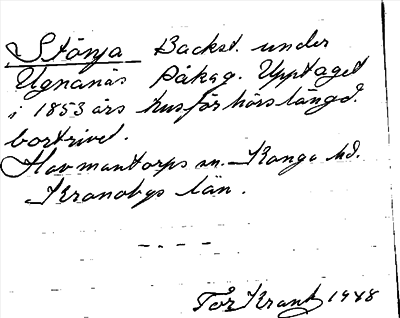 Stönja Backst. under
Ugnanäs Påkag. Upptaget
i 1853 års husförhörslängd.
bortrivet.
Hovmantorps sn. Konga hd.
Kronobgs län.
Tor Krantz 1948